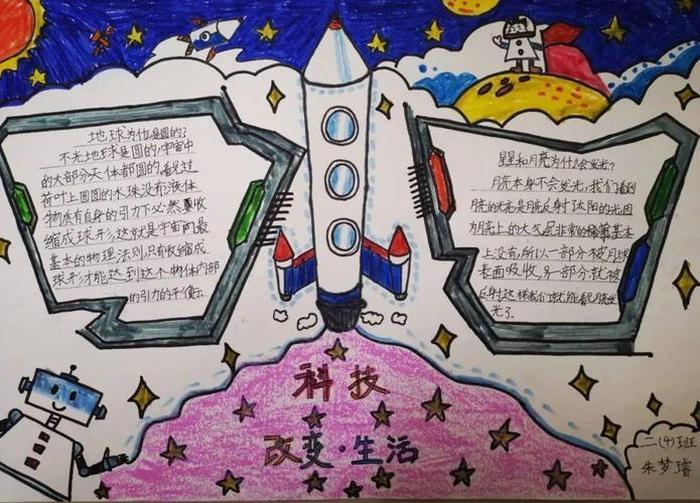 地球为什么是圆的?
不光地球是圆的,宇宙中
的大部分天体都圆的,看见过
荷叶上圆圆的水珠没有,液体
物质在自身的引力下必然要收
缩成球形,这就是宇宙间最
基本的物理法则,只有收缩成
球形才能达到这个物体内部
的引力的平衡。
星星和月亮为什么会发光?
月亮本身不会发光,我们看到
月亮的光亮是月亮反射太阳的光,因
为月亮上的大气层非常的稀薄基本
上没有,所以一部分被月球
表面吸收,另一部分就被
反射这样我们就能看见月亮发
光了.
科技
改变·生活
二(4)班
朱梦璿